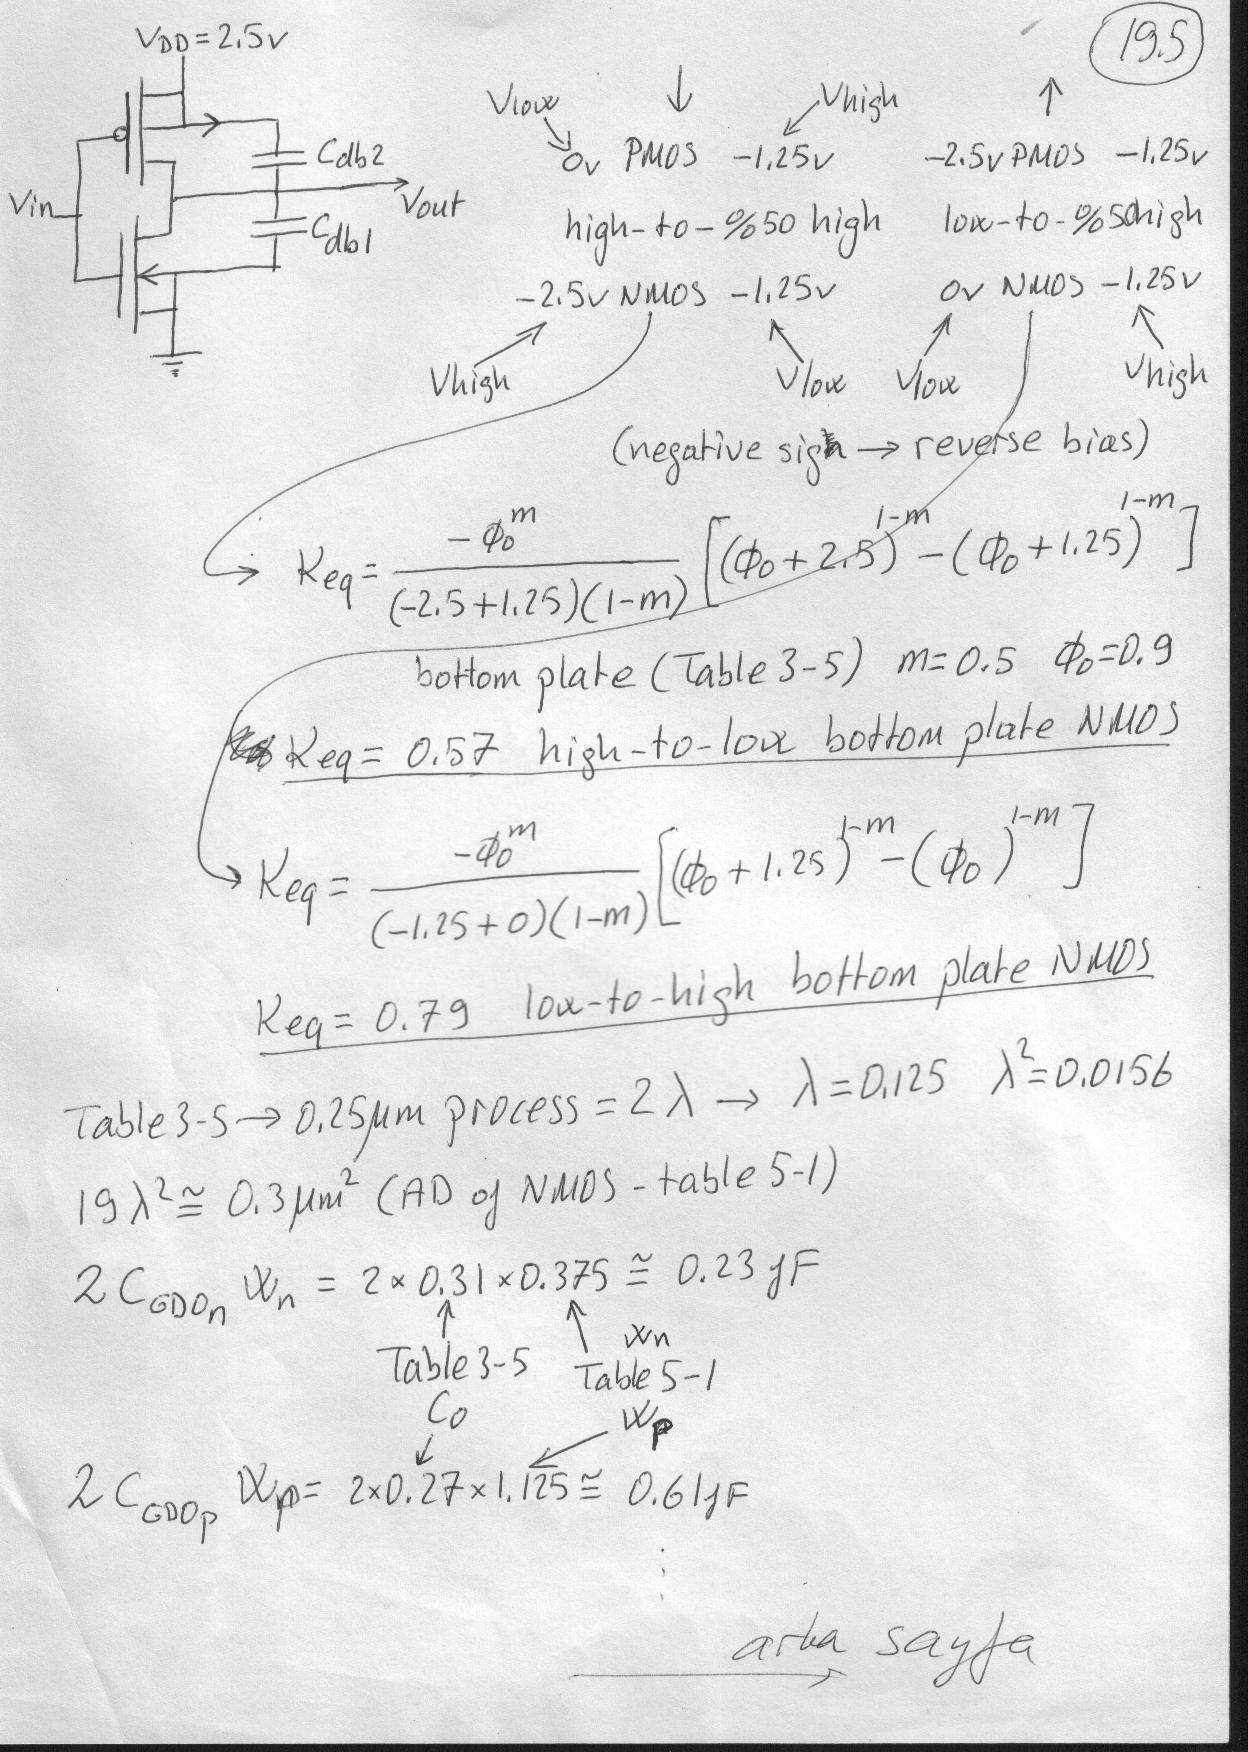 19.5
VDD = 2.5v
Vin
Cdb2
Vout
Cdb1
↓ ↑
Vlow Vhigh
0v PMOS -1.25v -2.5v PMOS -1.25v
high-to-%50 high low-to-%50high
-2.5v NMOS -1.25v 0v NMOS -1.25v
Vhigh Vlow Vlow Vhigh
(negative sign → reverse bias)
Keq = -ϕ0^m / (-2.5+1.25)(1-m) [(ϕ0+2.5)^1-m - (ϕ0+1.25)^1-m]
bottom plate (Table 3-5) m=0.5 ϕ0=0.9
Keq = 0.57 high-to-low bottom plate NMOS
Keq = -ϕ0^m / (-1.25+0)(1-m) [(ϕ0+1.25)^1-m - (ϕ0)^1-m]
Keq = 0.79 low-to-high bottom plate NMOS
Table 3-5 → 0.25μm process = 2λ → λ = 0.125 λ² = 0.0156
19λ² ≅ 0.3μm² (AD of NMOS - table 5-1)
2 CGDOn Wn = 2 × 0.31 × 0.375 ≅ 0.23 fF
Table 3-5
C0
Wn
Table 5-1
Wp
2 CGDOp Wp = 2×0.27×1.125 ≅ 0.61fF
arka sayfa